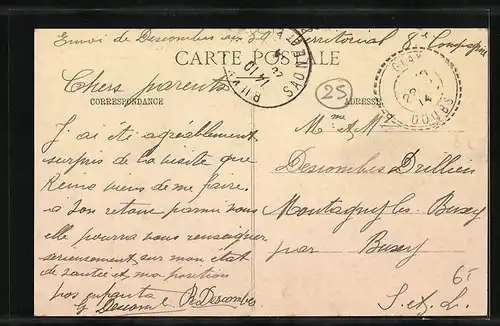 Envoi de Descombes au 59 Territorial 8e Compagnie
CARTE POSTALE
Chers parents
CORRESPONDANCE
ADRESSE
25
DOUBS
SAONE ET
J'ai été agréablement
surpis de la visite que
Reine viens de me faire.
a son retour parmi vous
elle pourra vous renseigner
serieusement sur mon état
de santée et ma position
vos enfants
Descombes
Mme & M
Descombes Drillien
Montagny les Buxy
par Buxy
S. et L.
6F